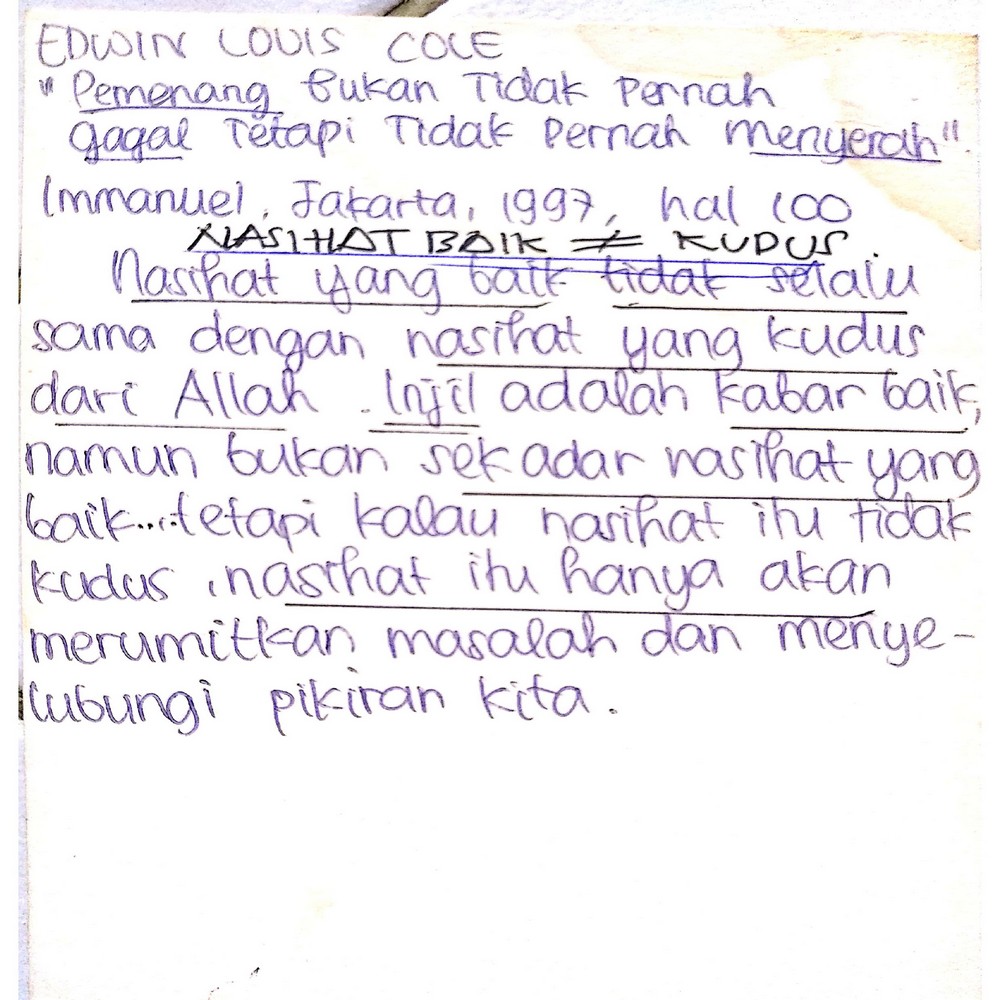 EDWIN LOUIS COLE
" Pemenang Bukan Tidak Pernah
gagal Tetapi Tidak Pernah menyerah".
Immanuel, Jakarta, 1997, hal 100
NASIHAT BAIK ≠ KUDUS.
Nasihat yang baik tidak selalu
sama dengan nasihat yang kudus
dari Allah. Injil adalah kabar baik,
namun bukan sekadar nasihat yang
baik....tetapi kalau nasihat itu tidak
kudus, nasihat itu hanya akan
merumitkan masalah dan menye-
lubungi pikiran kita.